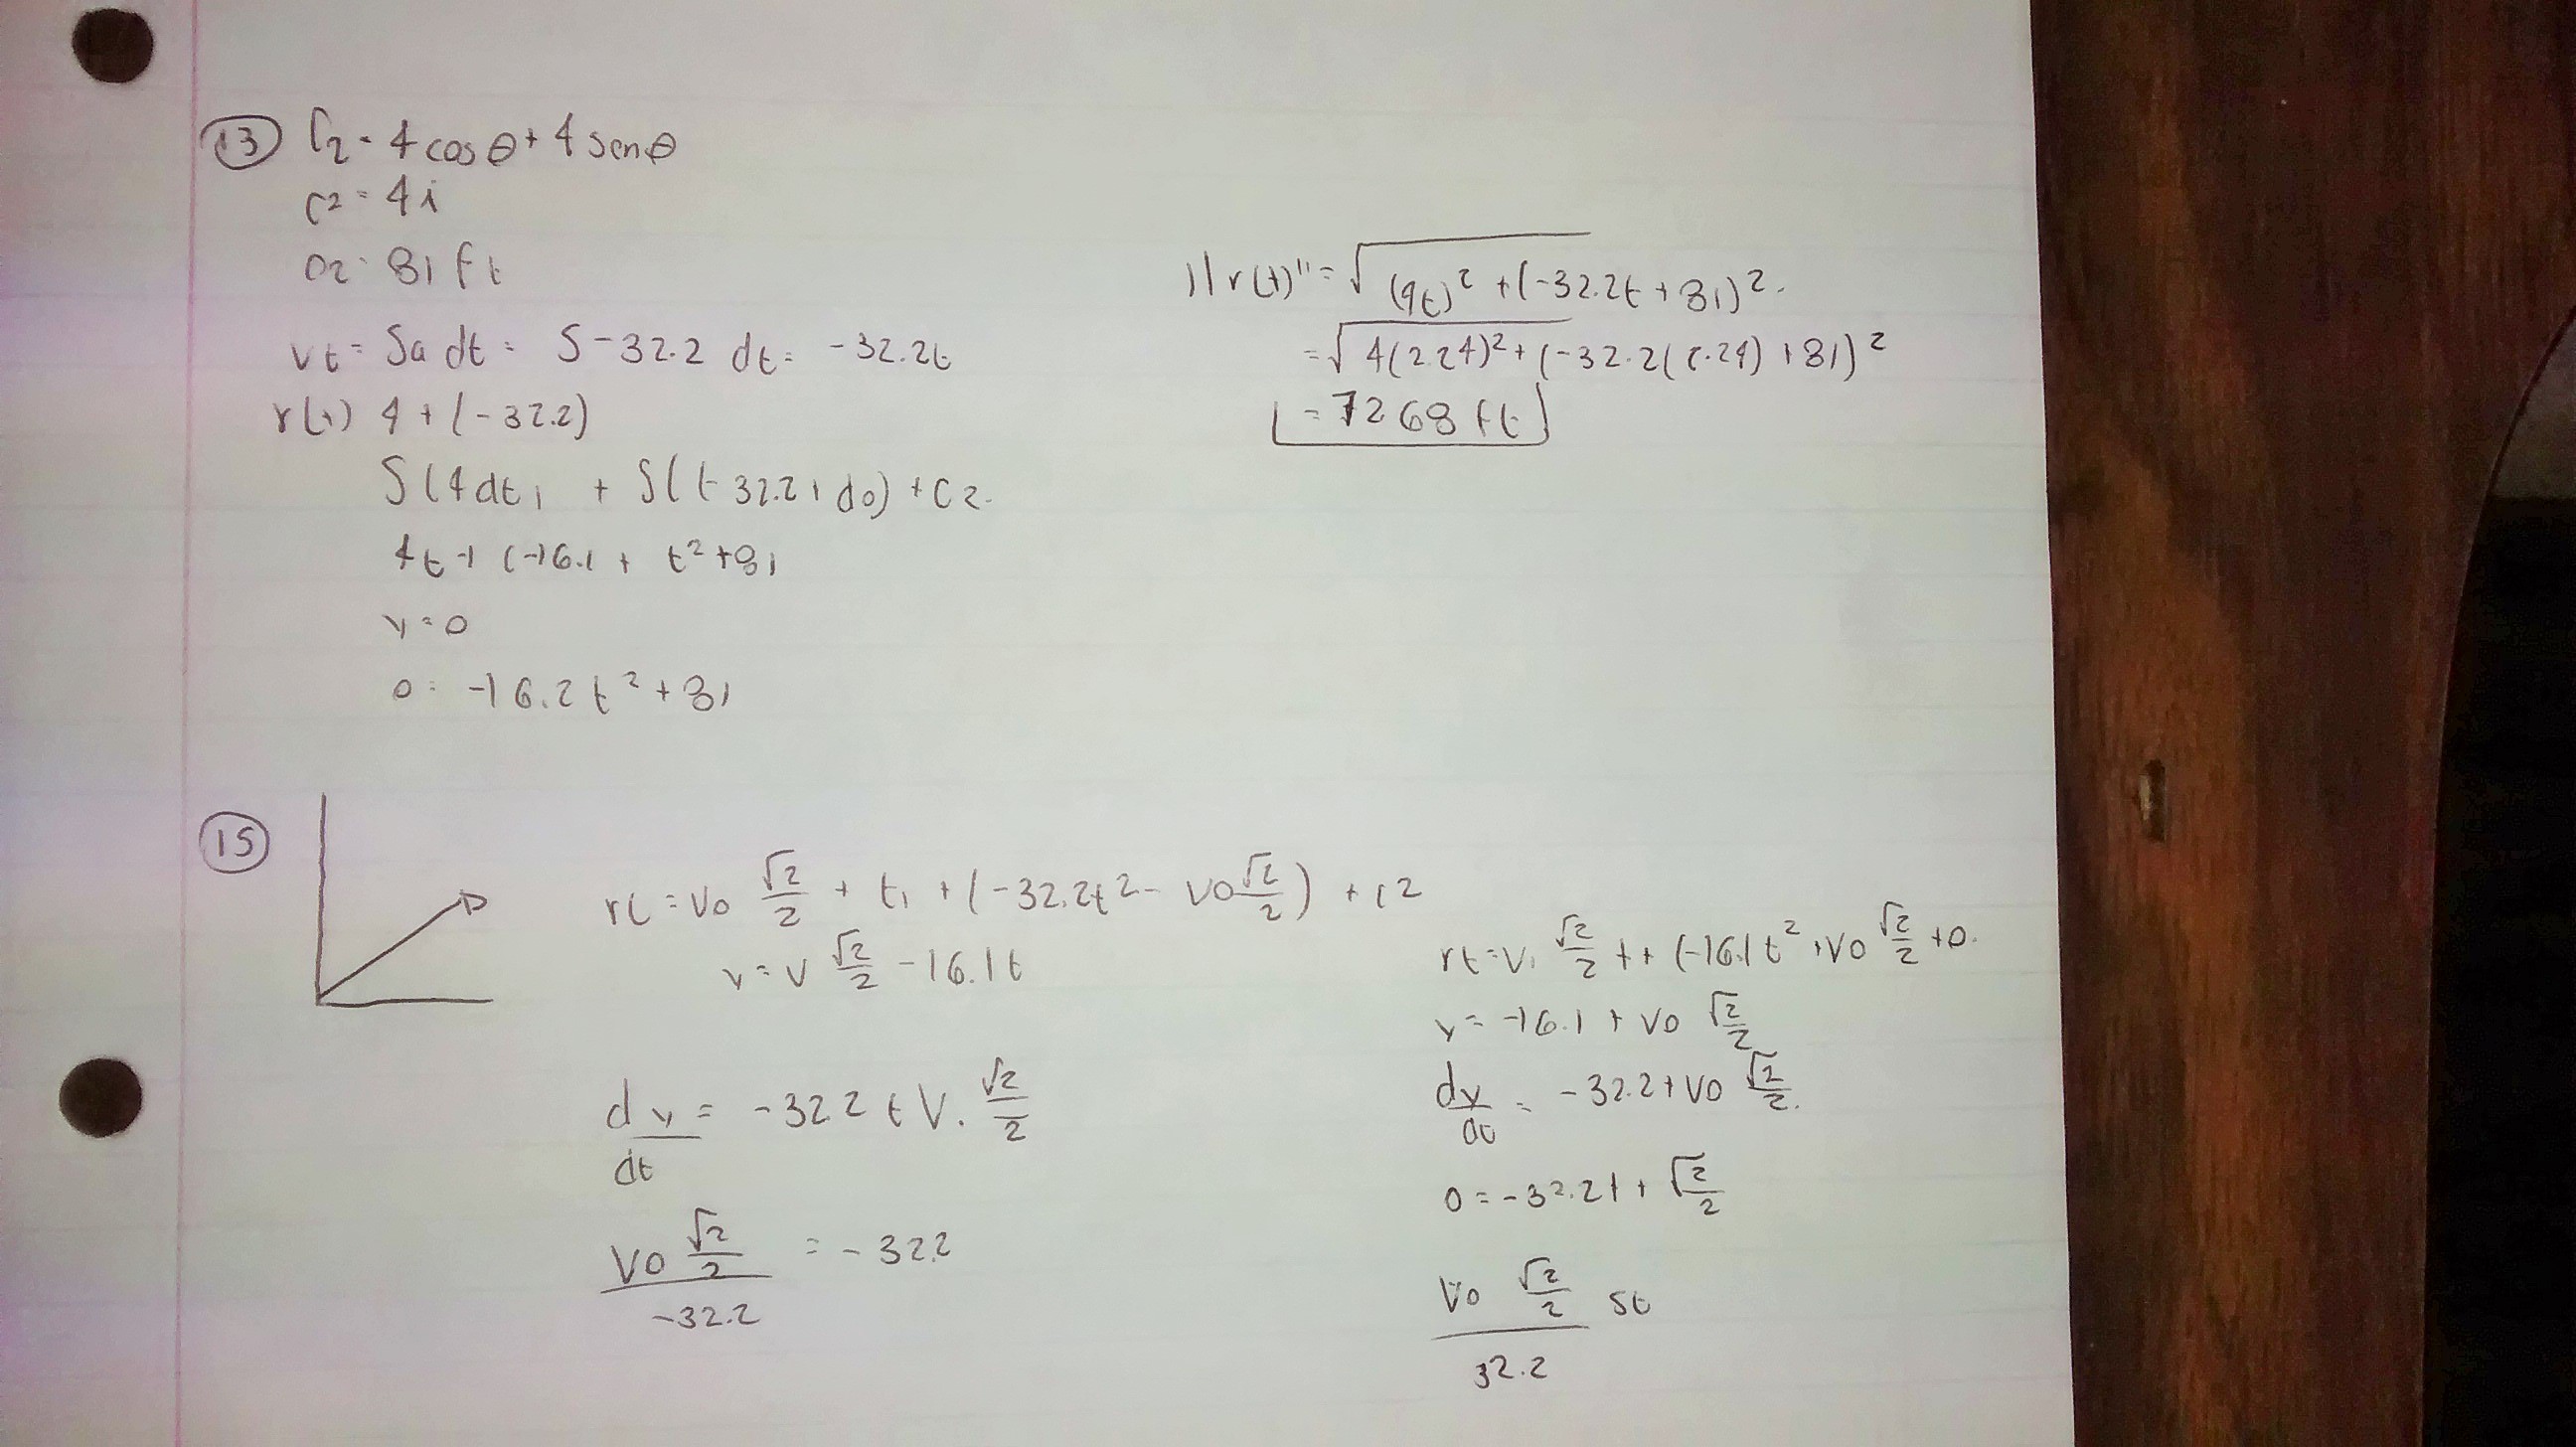 13 C2 = 4 cos θ + 4 sen θ
C2 = 4i
O2 = 81 ft
vt = Sa dt = S -32.2 dt = -32.2t
r(t) 4 + (-32.2)
S(4dt, + S(t-32.2, do) + C2.
4t + (-16.1 + t² + 81
y = 0
0 = -16.2t² + 81
||r(t)" = √(4t)² + (-32.2t + 81)².
= √4(2.24)² + (-32.2(2.24) + 81)²
= 7268 ft
15
rt = Vo √2/2 + t, + (-32.2t² - Vo √2/2) + C2
y = V √2/2 - 16.1t
dy/dt = -32.2 t V. √2/2
Vo √2/2 / -32.2 = -32.2
rt = V. √2/2 t + (-16.1t² + Vo √2/2 + 0.
y = -16.1 + Vo √2/2
dy/dt = -32.2 + Vo √2/2.
0 = -32.2t + √2/2
Vo √2/2 / 32.2 st